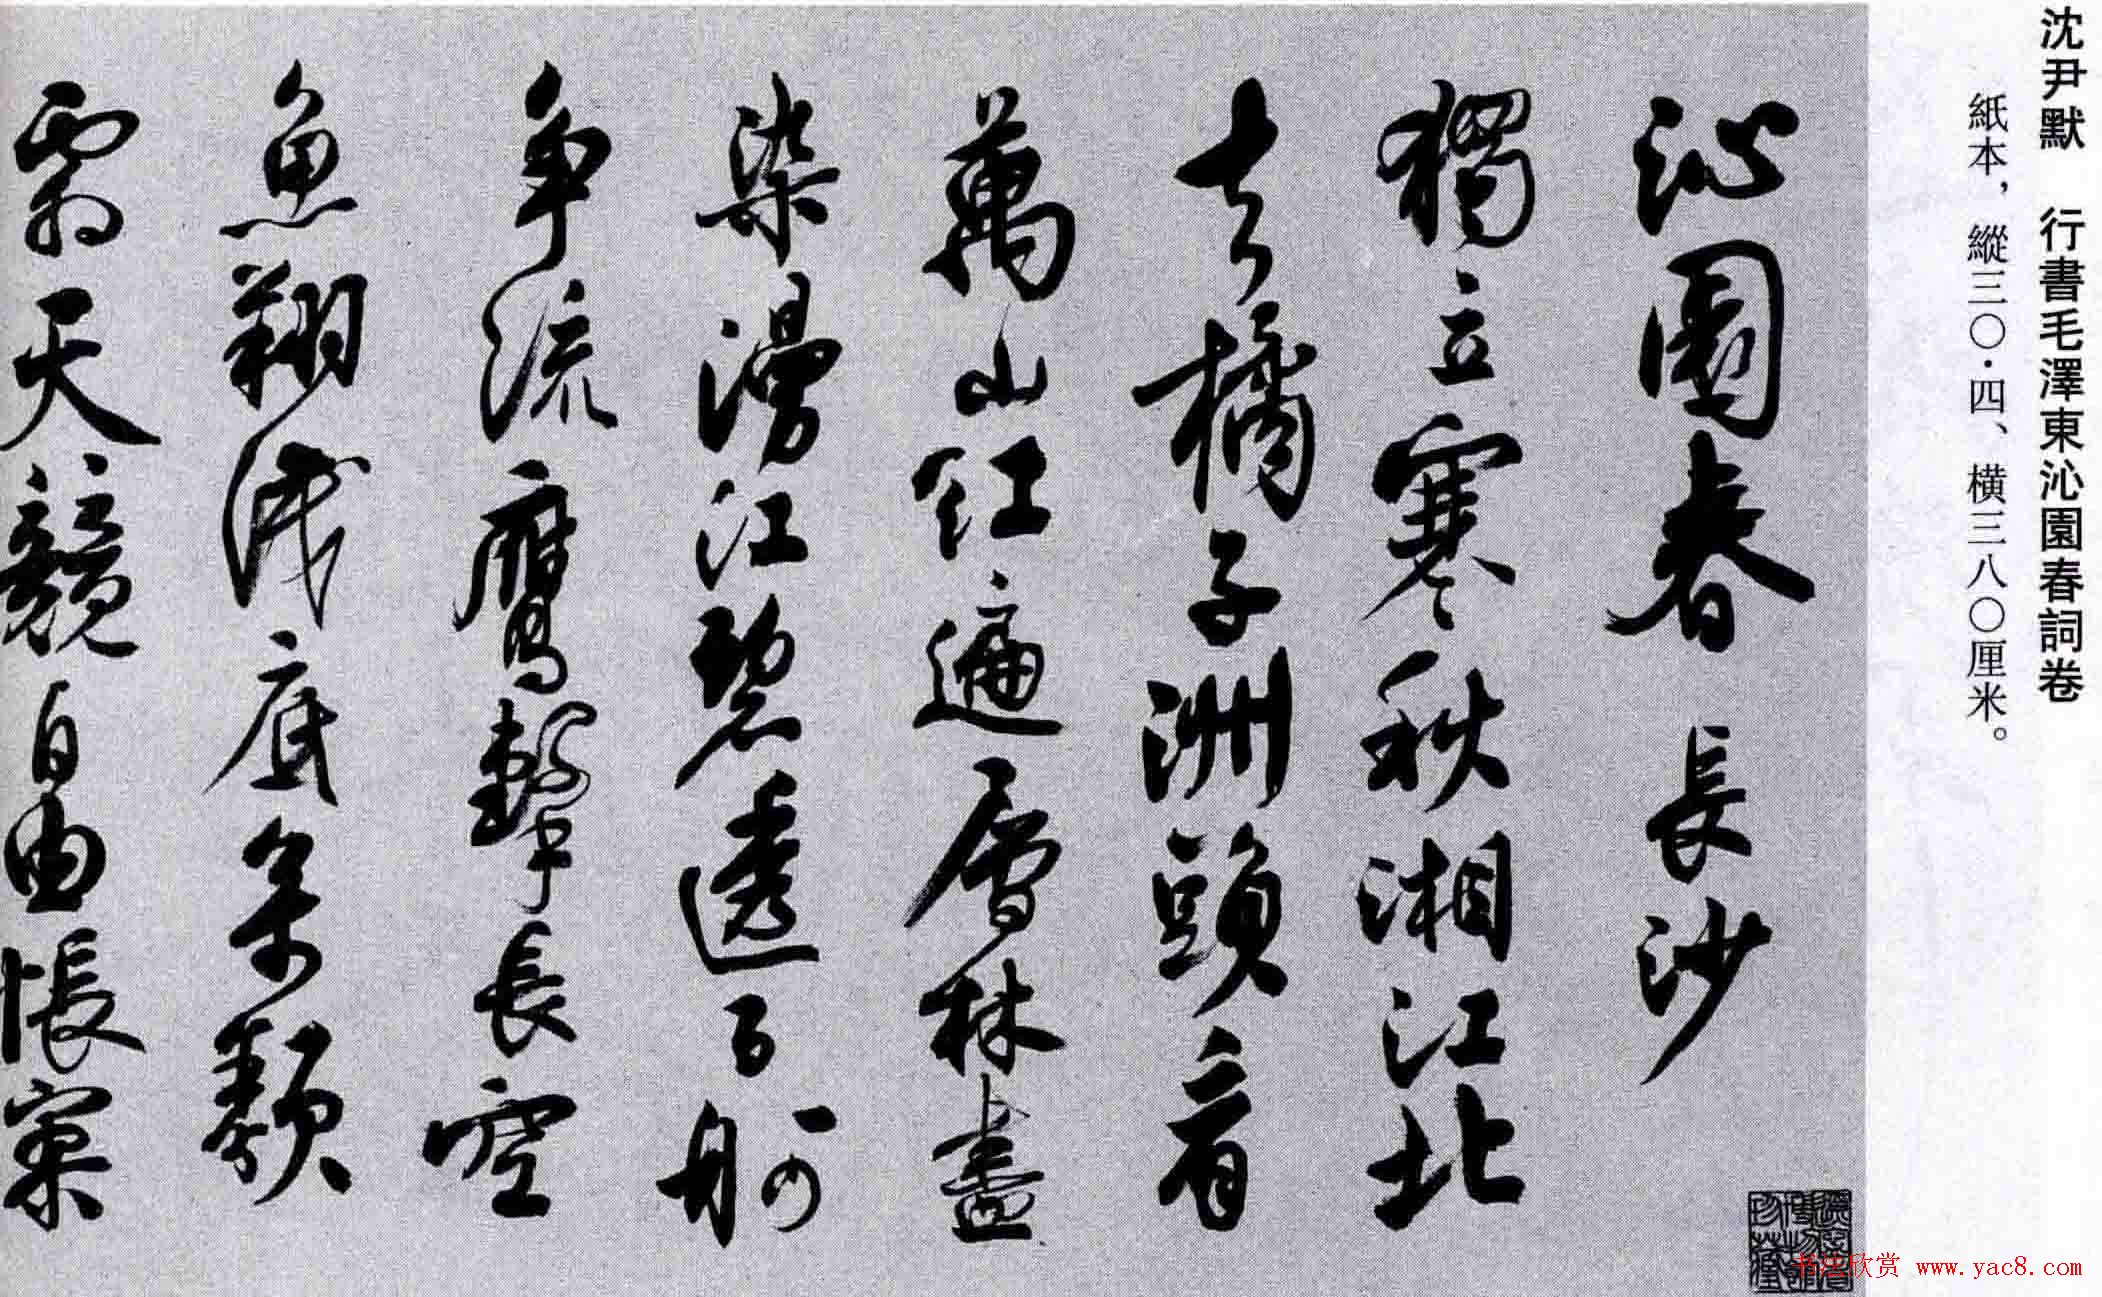 沈尹默　行書毛澤東沁園春詞卷
紙本，縱三〇·四、橫三八〇厘米。
沁園春 長沙
獨立寒秋湘江北
去橘子洲頭看
萬山紅遍層林盡
染漫江碧透百舸
争流鷹擊長空
魚翔淺底萬類
霜天競自由悵寥
书法欣赏 www.yac8.com